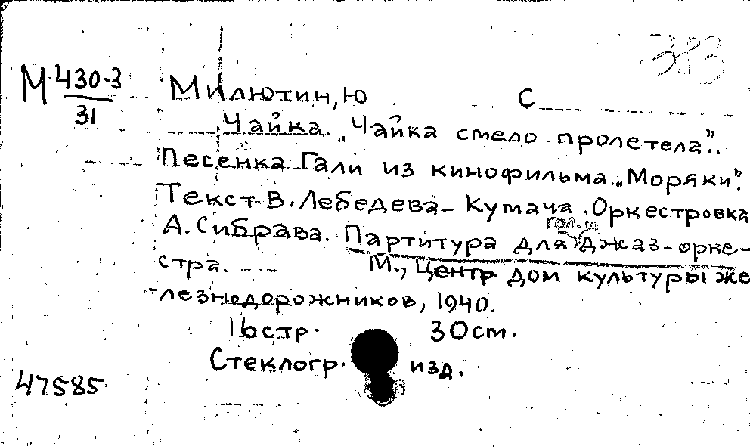 383
М 430-3
31
Милютин, Ю С
Чайка. „Чайка смело пролетела”..
Песенка Гали из кинофильма „Моряки”.
Текст В. Лебедева-Кумача. Оркестровка
А. Сибрава. Партитура для гол. и джаз-орке-
стра. М., Центр дом культуры же
лезнодорожников, 1940.
16 стр. 30 см.
Стеклогр. изд.
47585